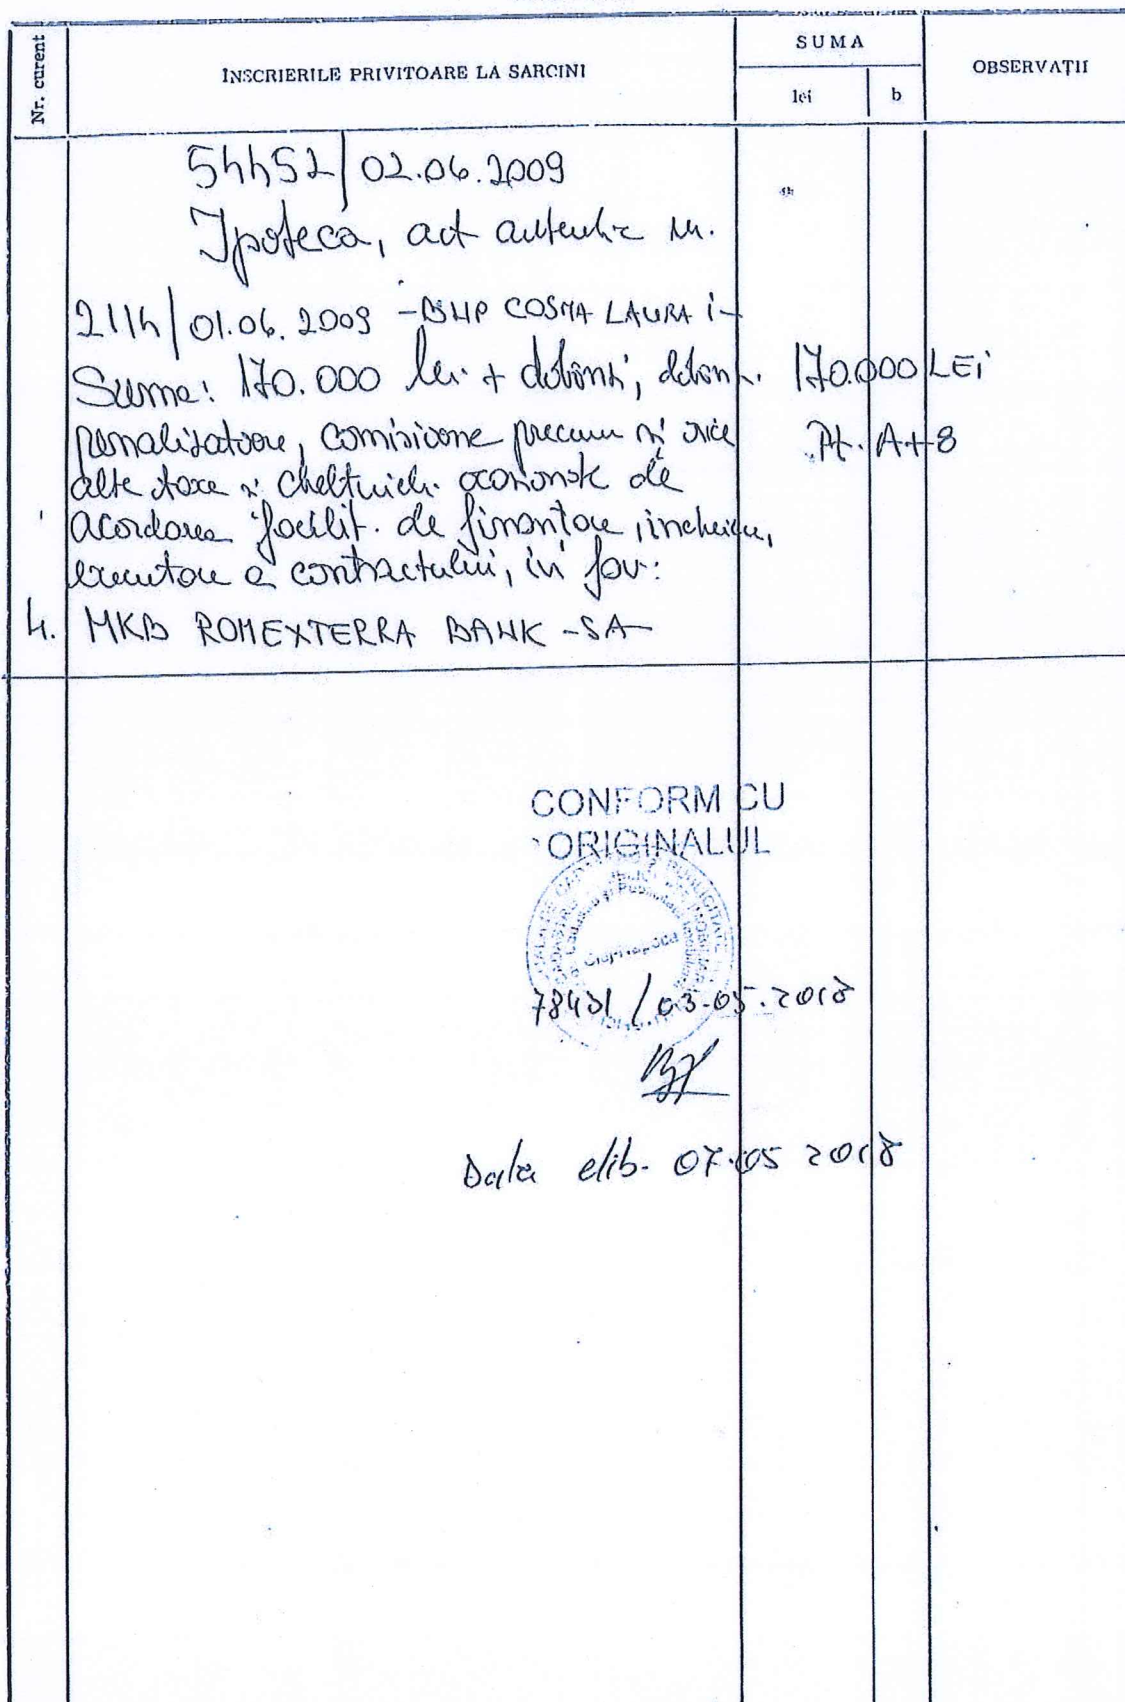 Nr. curent
ÎNSCRIERILE PRIVITOARE LA SARCINI
SUMA
lei
b
OBSERVAȚII
54452/02.06.2009
Ipoteca, act autentic nr.
2114/01.06.2009 - BNP COSMA LAURA i-
Suma: 170.000 lei + dobinzi, dobinz. 170.000 LEI
penalizatoare, comisioane precum și orice Pt. A+8
alte taxe și cheltuieli de
acordarea facilit. de finanțare, incheierea,
executare a contractului, in fav:
4. MKB ROMEXTERRA BANK -SA-
CONFORM CU
ORIGINALUL
Cluj-Napoca
/03.05.2018
Data elib. 07.05 2018